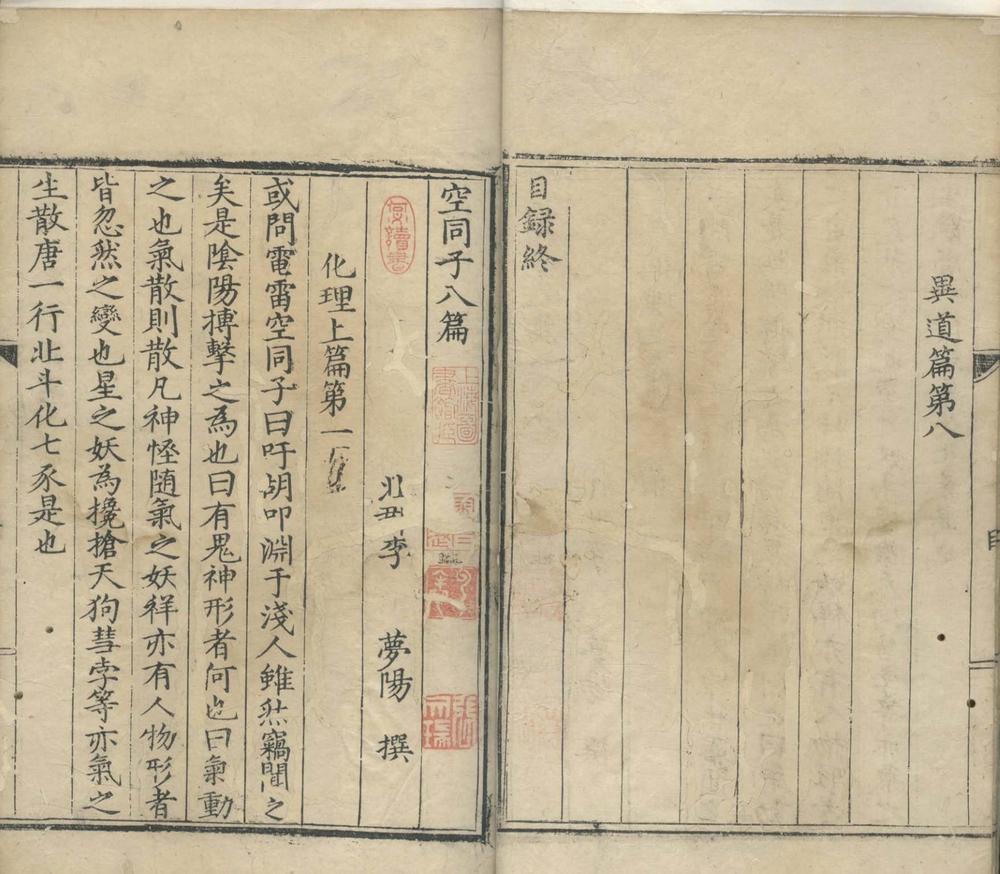 異道篇第八
目録終
空同子八篇
北郡李夢陽撰
化理上篇第一
或問電雷空同子曰吁胡叩淵于淺人雖然竊聞之
矣是陰陽摶擊之為也曰有鬼神形者何也曰氣動
之也氣散則散凡神怪随氣之妖祥亦有人物形者
皆忽然之變也星之妖為攙搶天狗彗孛等亦氣之
生散唐一行北斗化七豕是也